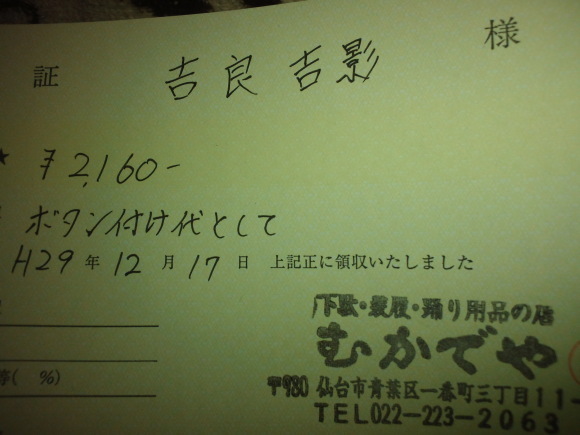 証 吉良吉影 様
★ ¥2,160-
ボタン付け代として
H29年12月17日 上記正に領収いたしました
(%)
下駄・草履・踊り用品の店
むかでや
〒980 仙台市青葉区一番町三丁目11-
TEL022-223-2063